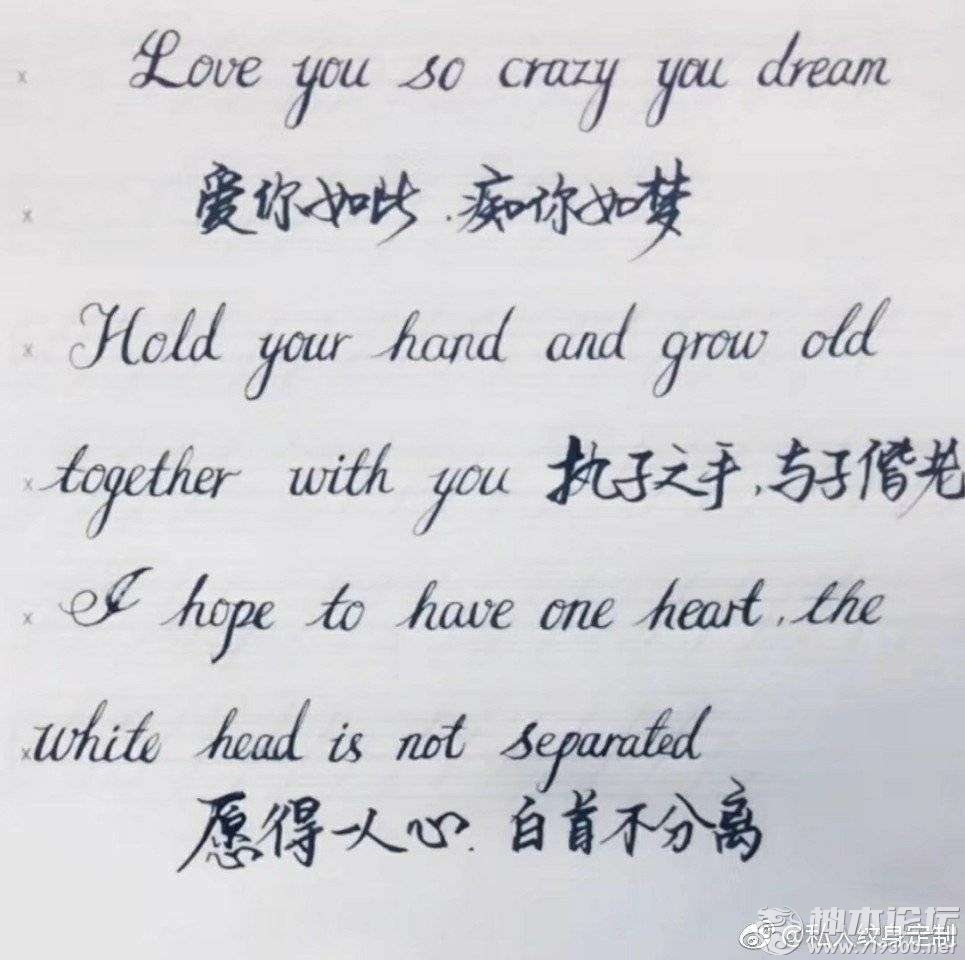 Love you so crazy you dream
爱你如此.痴你如梦
Hold your hand and grow old
together with you 执子之手,与子偕老
I hope to have one heart, the
white head is not separated
愿得一人心.白首不分离
柚木论坛
@私人纹身定制
www.719300.net